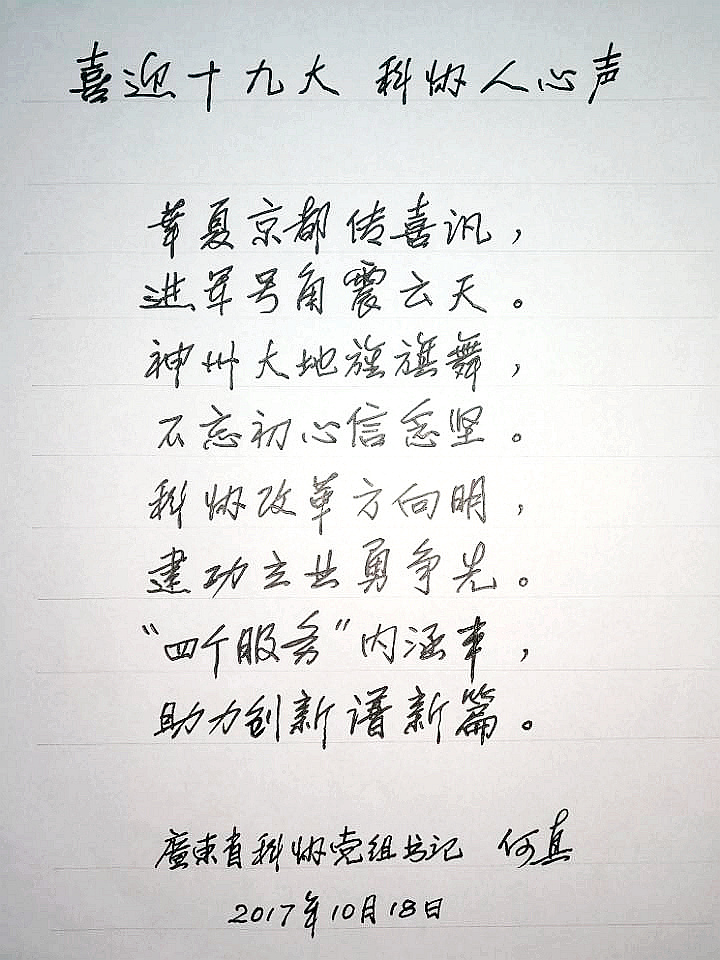 喜迎十九大 科协人心声
华夏京都传喜讯，
进军号角震云天。
神州大地旌旗舞，
不忘初心信念坚。
科协改革方向明，
建功立业勇争先。
“四个服务”内涵丰，
助力创新谱新篇。
廣东省科协党组书记 何真
2017年10月18日